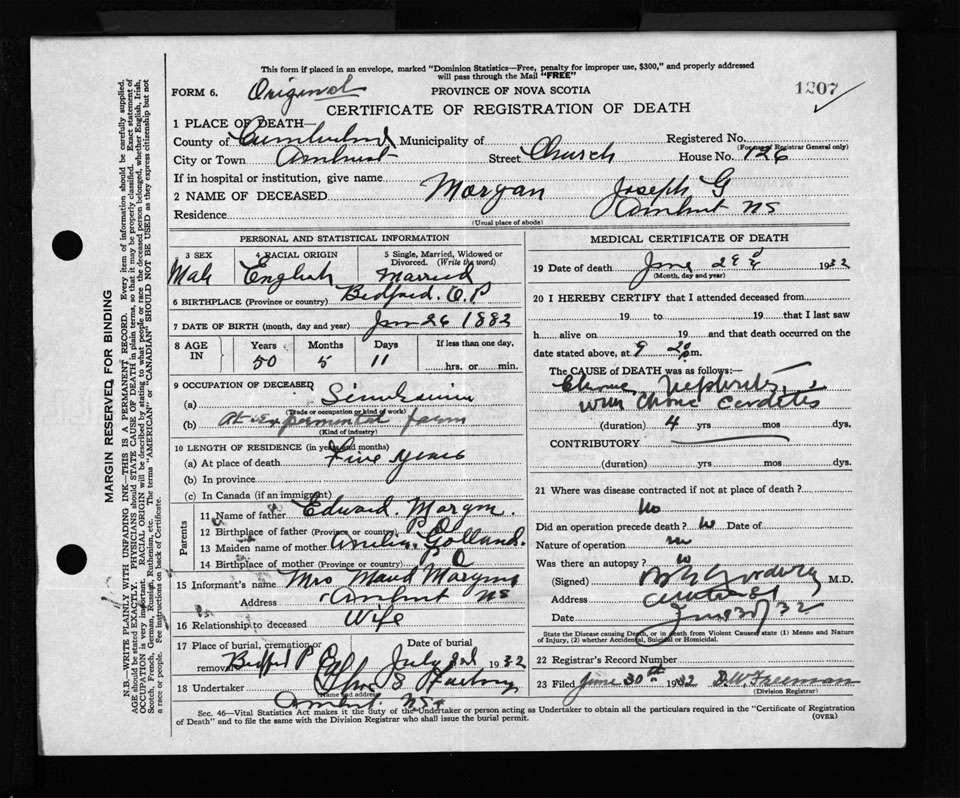 This form if placed in an envelope, marked "Dominion Statistics—Free, penalty for improper use, $300," and properly addressed
will pass through the Mail "FREE"
FORM 6. Original PROVINCE OF NOVA SCOTIA 1207
CERTIFICATE OF REGISTRATION OF DEATH
1 PLACE OF DEATH—
County of Cumberland Municipality of Registered No.
(For use of Registrar General only)
City or Town Amherst Street Church House No. 126
If in hospital or institution, give name
2 NAME OF DECEASED Morgan Joseph G
Residence Amherst NS
(Usual place of abode)
PERSONAL AND STATISTICAL INFORMATION
3 SEX 4 RACIAL ORIGIN 5 Single, Married, Widowed or
Divorced. (Write the word)
Male English Married
6 BIRTHPLACE (Province or country) Bedford.
7 DATE OF BIRTH (month, day and year) Jan 26 1882
8 AGE IN Years Months Days If less than one day,
50 5 11 hrs. or min.
9 OCCUPATION OF DECEASED
(a)
(Trade or occupation or kind of work)
(b) At Experimental farm
(Kind of industry)
10 LENGTH OF RESIDENCE (in years and months)
(a) At place of death Five years
(b) In province
(c) In Canada (if an immigrant)
Parents
11 Name of father Edward. Morgan.
12 Birthplace of father (Province or country) P Q
13 Maiden name of mother Amelia Golland.
14 Birthplace of mother (Province or country) P Q
15 Informant's name Mrs Maud Morgan
Address Amherst NS
16 Relationship to deceased Wife
17 Place of burial, cremation or Date of burial
removal Bedford P Q July 2nd 1932
18 Undertaker
(Name and address)
Amherst. NS
MEDICAL CERTIFICATE OF DEATH
19 Date of death June 1932
(Month, day and year)
20 I HEREBY CERTIFY that I attended deceased from
19 to 19 that I last saw
h alive on 19 and that death occurred on
date stated above, at 9 m.
The CAUSE OF DEATH was as follows:—
Chronic Nephritis
with Chronic Carditis
(duration) 4 yrs mos dys.
CONTRIBUTORY
(duration) yrs mos dys.
21 Where was disease contracted if not at place of death?
No
Did an operation precede death? no Date of
Nature of operation no
Was there an autopsy? no
(Signed) M.D.
Address
Date June 30/32
State the Disease causing Death, or in death from Violent Causes, state (1) Means and Nature
of Injury, (2) whether Accidental, Suicidal or Homicidal.
22 Registrar's Record Number
23 Filed June 30th 1932 D.W. Freeman
(Division Registrar)
Sec. 46—Vital Statistics Act makes it the duty of the Undertaker or person acting as Undertaker to obtain all the particulars required in the "Certificate of Registration
of Death" and to file the same with the Division Registrar who shall issue the burial permit. (OVER)
MARGIN RESERVED FOR BINDING
N.B.—WRITE PLAINLY WITH UNFADING INK—THIS IS A PERMANENT RECORD. Every item of information should be carefully supplied.
AGE should be stated EXACTLY. PHYSICIANS should STATE CAUSE OF DEATH in plain terms, so that it may be properly classified. Exact statement of
OCCUPATION is very important. RACIAL ORIGIN will be described by stating to what people or race the deceased person belonged, whether English, Irish,
Scotch, French, German, Russian, Ruthenian, etc. The terms "AMERICAN" or "CANADIAN" SHOULD NOT BE USED as they express citizenship but not
a race or people. See instructions on back of Certificate.